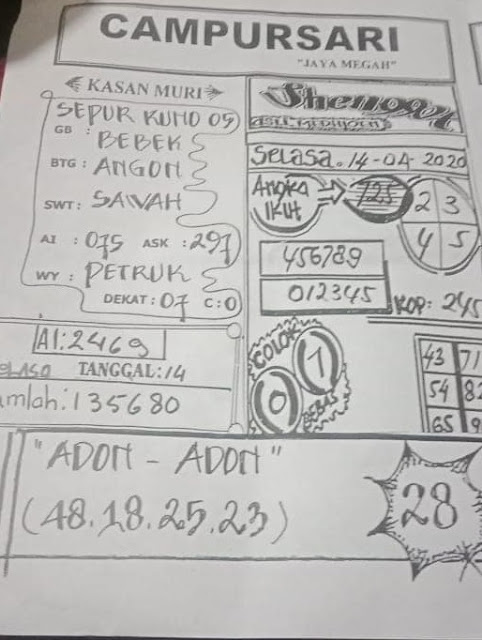 CAMPURSARI
"JAYA MEGAH"
KASAN MURI
SEPUR KUNO 05
GB : BEBEK
BTG : ANGON
SWT : SAWAH
AI : 075 ASK : 297
WY : PETRUK
DEKAT : 07 C : 0
AI: 2469
TANGGAL: 14
mlah: 135680
Selasa. 14-04-2020
Angka
IKUT
725
2 3
4 5
456789
012345
KOP: 245
COLOK
0 1
BEBAS
43 71
54 82
65 9
"ADON - ADON"
(48.18.25.23)
28